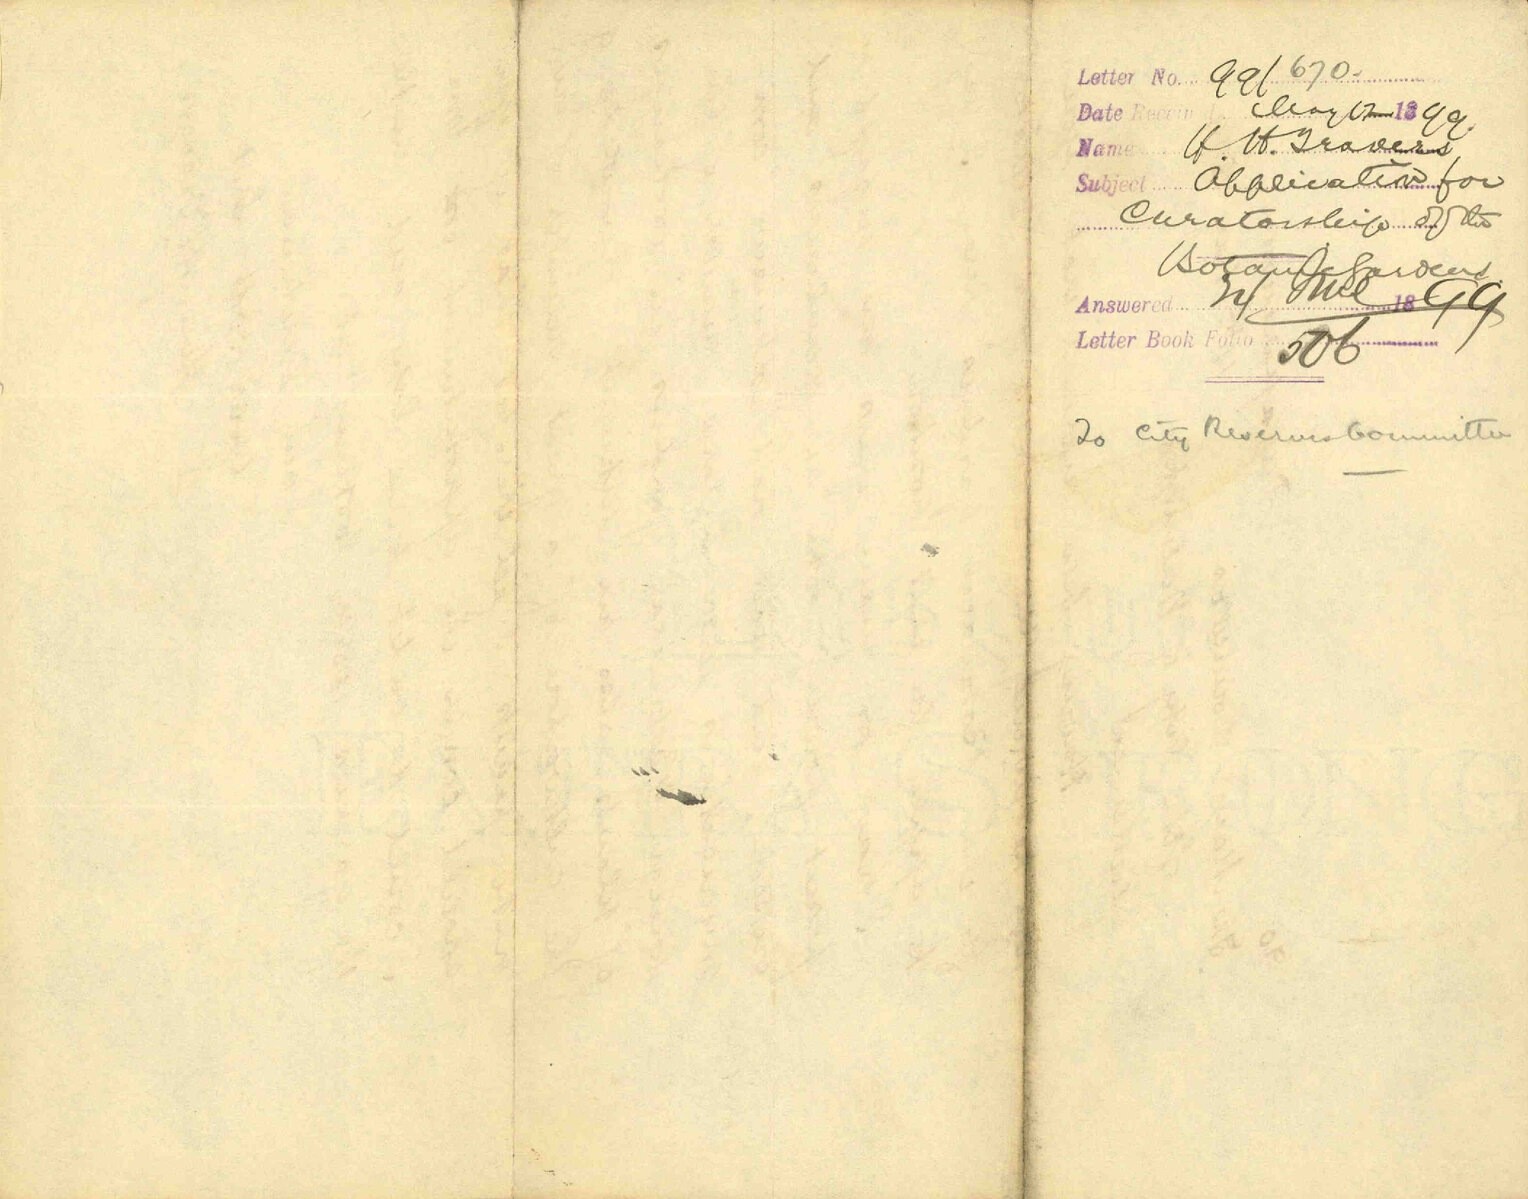 Letter No. 99/670.
Date Received May 12 1899.
Name H. H. Travers
Subject Application for
Curatorship of the
Botanic Gardens.
Answered 1899
Letter Book Folio 506
To City Reserves Committee